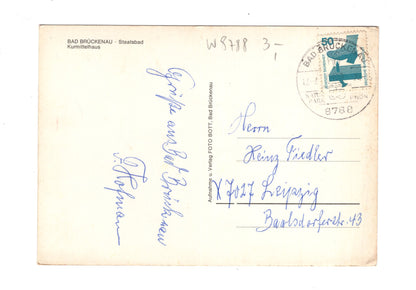 BAD BRÜCKENAU - Staatsbad
Kurmittelhaus
W 8788 3,-
50
BAD BRÜCKENAU
8788
Grüße aus Bad Brückenau
F. Hofmann
Aufnahme u. Verlag FOTO BOTT, Bad Brückenau
Herrn
Heinz Fiedler
X 7027 Leipzig
Baalsdorferstr. 43